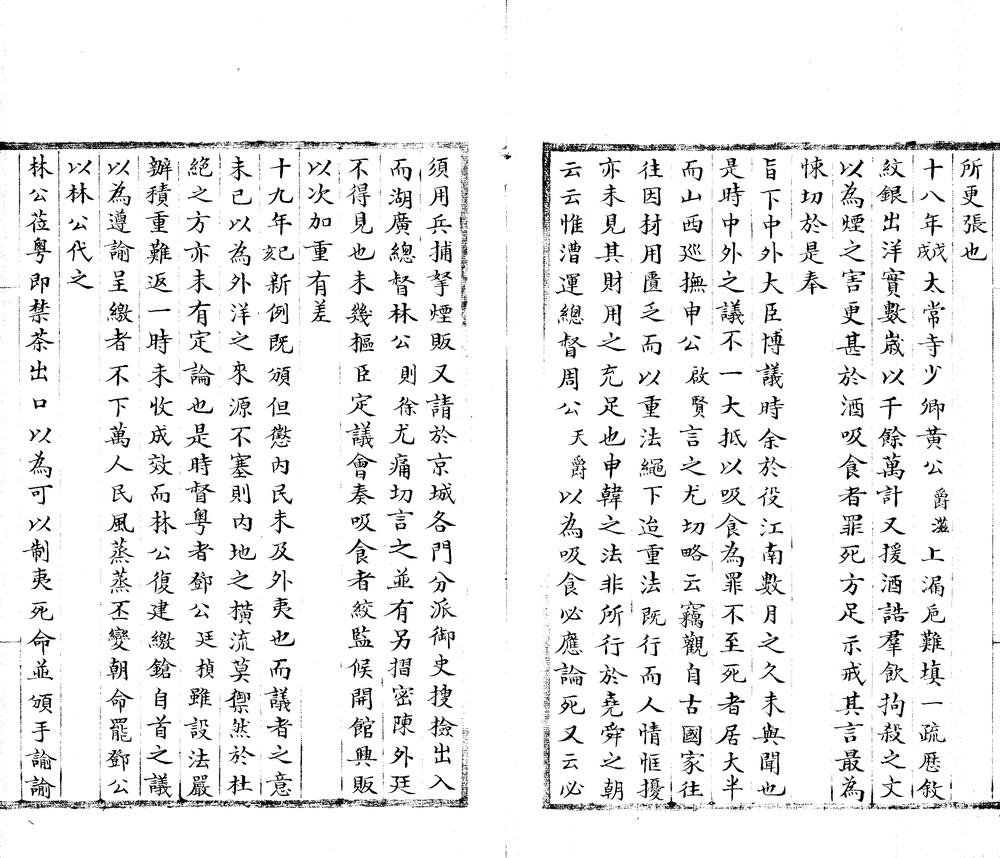 所更張也
十八年戊戌太常寺少卿黃公爵滋上漏卮難填一疏歷敘
紋銀出洋實數歲以千餘萬計又援酒誥羣飲拘殺之文
以為煙之害更甚於酒吸食者罪死方足示戒其言最為
悚切於是奉
旨下中外大臣博議時余於役江南數月之久未與聞也
是時中外之議不一大抵以吸食為罪不至死者居大半
而山西巡撫申公啟賢言之尤切略云竊觀自古國家往
往因材用匱乏而以重法繩下迨重法既行而人情恇擾
亦未見其財用之充足也申韓之法非所行於堯舜之朝
云云惟漕運總督周公天爵以為吸食必應論死又云必
須用兵捕拏煙販又請於京城各門分派御史搜檢出入
而湖廣總督林公則徐尤痛切言之並有另摺密陳外廷
不得見也未幾樞臣定議會奏吸食者絞監候開館興販
以次加重有差
十九年己亥新例既頒但懲內民未及外夷也而議者之意
未已以為外洋之來源不塞則內地之橫流莫禦然於杜
絕之方亦未有定論也是時督粵者鄧公廷楨雖設法嚴
辦積重難返一時未收成效而林公復建繳鎗自首之議
以為遵諭呈繳者不下萬人民風蒸蒸丕變朝命罷鄧公
以林公代之
林公蒞粵即禁茶出口以為可以制夷死命並頒手諭諭